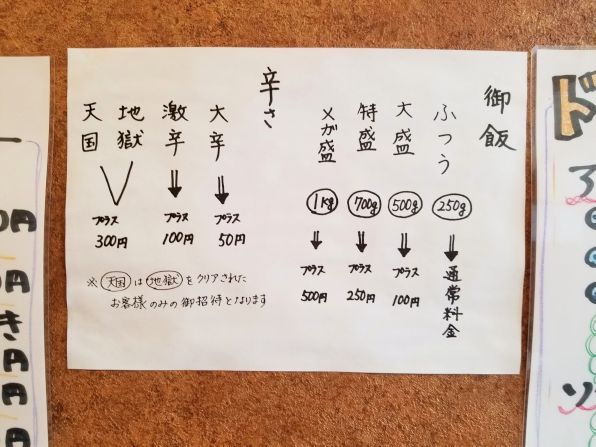 御飯
ふつう 250g ⇒ 通常料金
大盛 500g ⇒ プラス 100円
特盛 700g ⇒ プラス 250円
メガ盛 1kg ⇒ プラス 500円
辛さ
大辛 ⇒ プラス 50円
激辛 ⇒ プラス 100円
地獄
天国
プラス 300円
※天国は地獄をクリアされた
お客様のみの御招待となります
ド
円
円
き
円
円
円